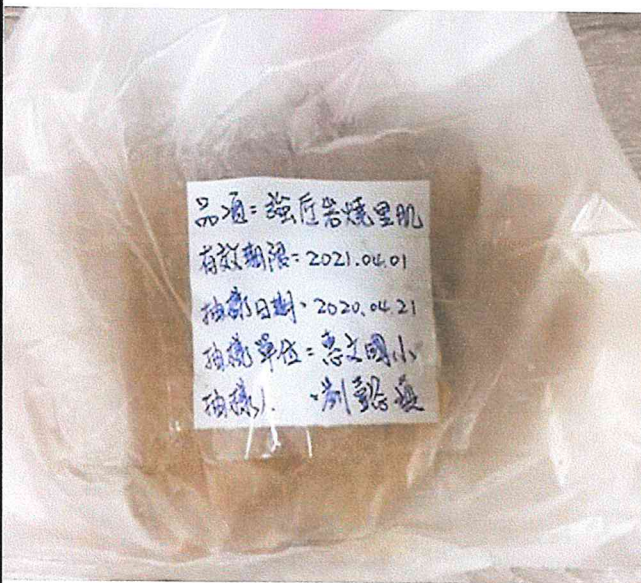 品項:強匠岩燒里肌
有效期限:2021.04.01
抽樣日期:2020.04.21
抽樣單位:惠文國小
抽樣人:劉